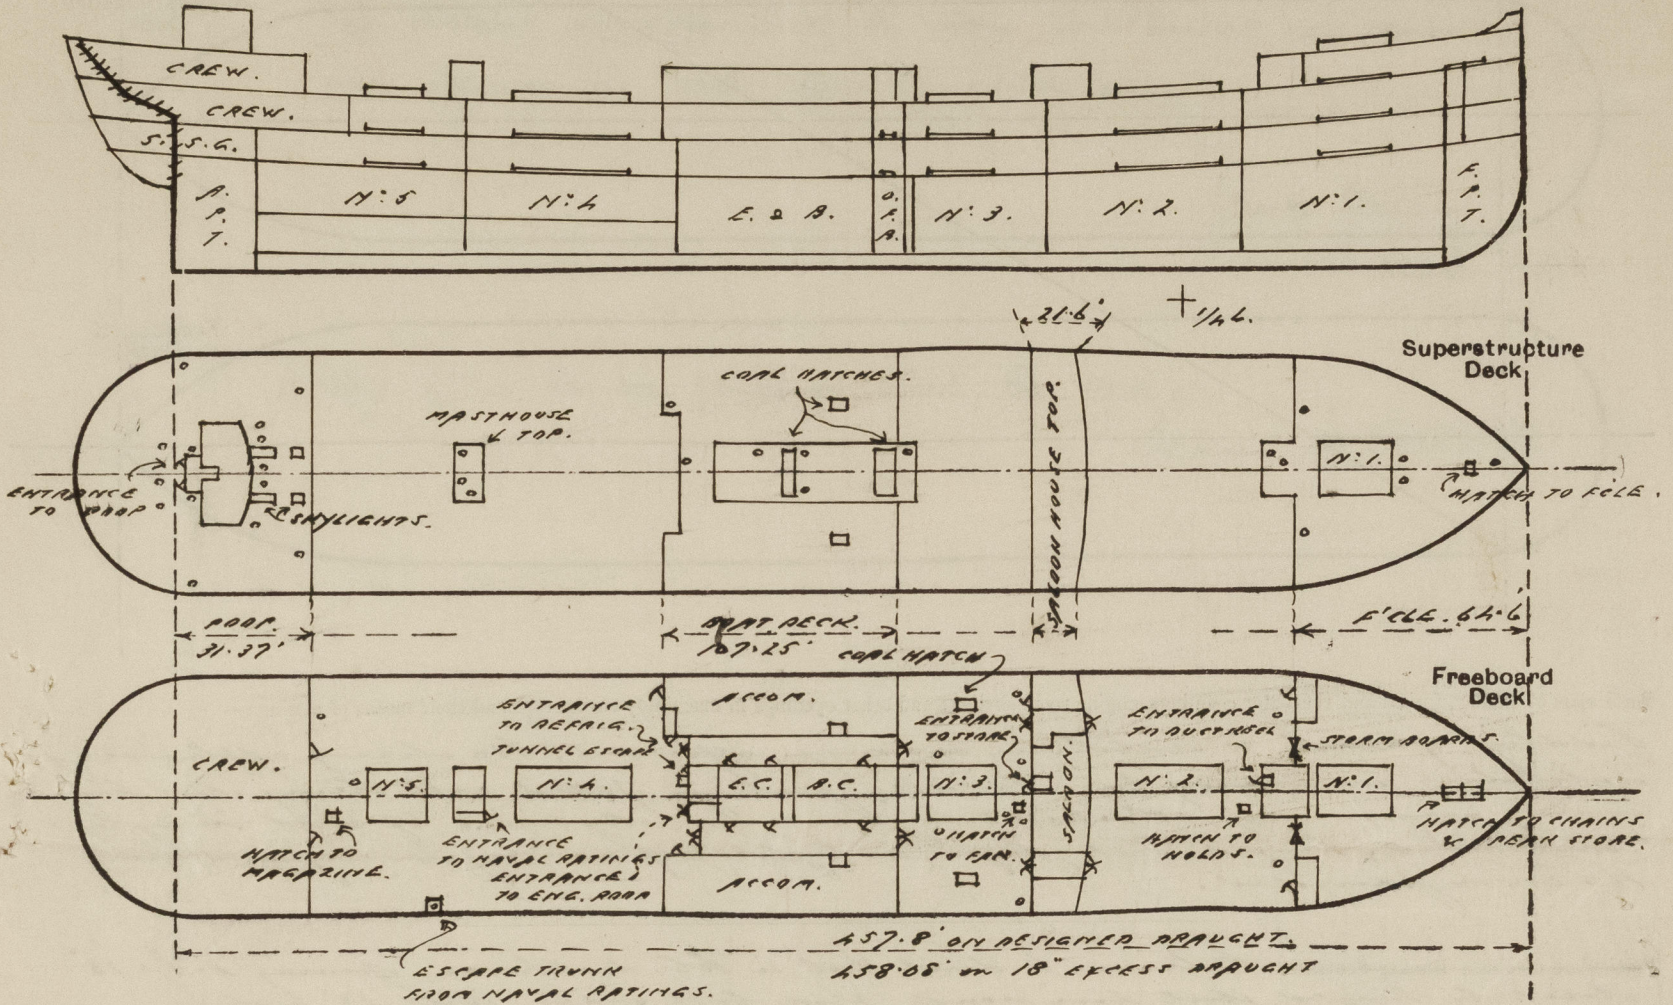 CREW.
CREW.
S. S. G.
A.
P.
T.
Nº 5
Nº 4
E. & B.
O.
F.
B.
Nº 3.
Nº 2.
Nº 1.
F.
P.
T.
21·6'
Superstructure
Deck
COAL HATCHES.
MASTHOUSE
TOP.
SALOON HOUSE TOP.
Nº 1.
ENTRANCE
TO POOP
SKYLIGHTS.
HATCH TO FCLE.
POOP.
31·37'
BOAT DECK.
107·25'
F'CLE. 64·6'
COAL HATCH
Freeboard
Deck
ENTRANCE
TO REFRIG.
TUNNEL ESCAPE
ACCOM.
ENTRANCE
TO STORE.
ENTRANCE
TO DUCT KEEL
STORM BOARDS.
CREW.
Nº 5.
Nº 4.
E.C.
B.C.
Nº 3.
SALOON.
Nº 2.
Nº 1.
HATCH TO
MAGAZINE.
ENTRANCE
TO NAVAL RATINGS
ENTRANCE
TO ENG. ROOM
ACCOM.
HATCH
HATCH TO
HOLDS.
HATCH TO CHAINS
& PEAK STORE.
457·8' ON DESIGNED DRAUGHT.
458·08' on 18" EXCESS DRAUGHT
ESCAPE TRUNK
FROM NAVAL RATINGS.